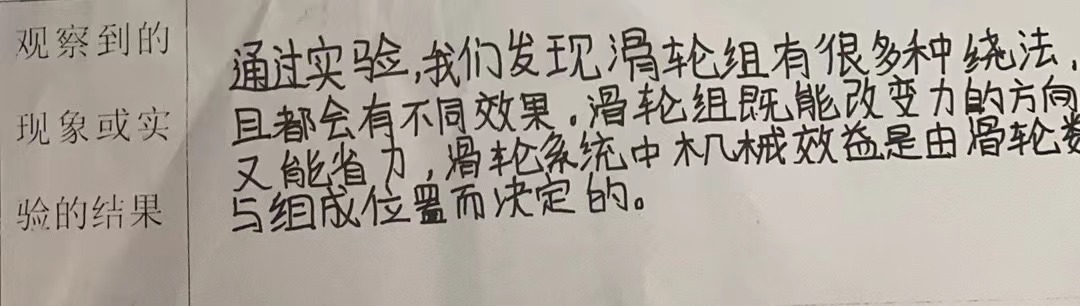 观察到的
现象或实
验的结果
通过实验,我们发现滑轮组有很多种绕法,
且都会有不同效果。滑轮组既能改变力的方向
又能省力,滑轮系统中机械效益是由滑轮数
与组成位置而决定的。